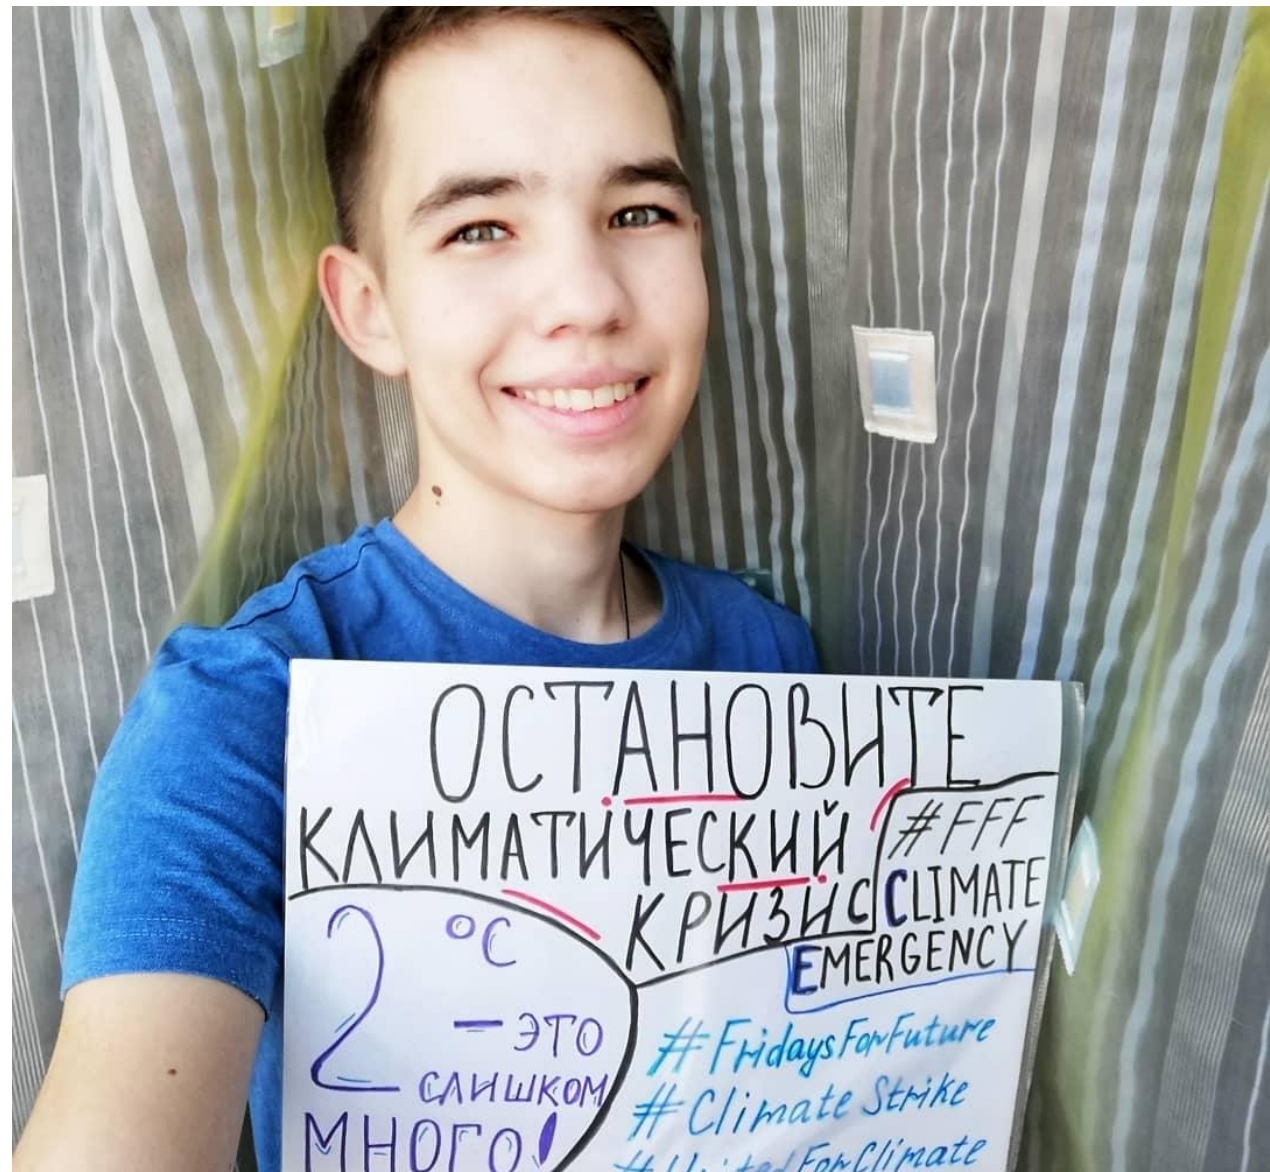 ОСТАНОВИТЕ
КЛИМАТИЧЕСКИЙ
КРИЗИС
#FFF
CLIMATE
EMERGENCY
2 °C
– ЭТО
СЛИШКОМ
МНОГО!
#FridaysForFuture
#Climate Strike
#UnitedForClimate